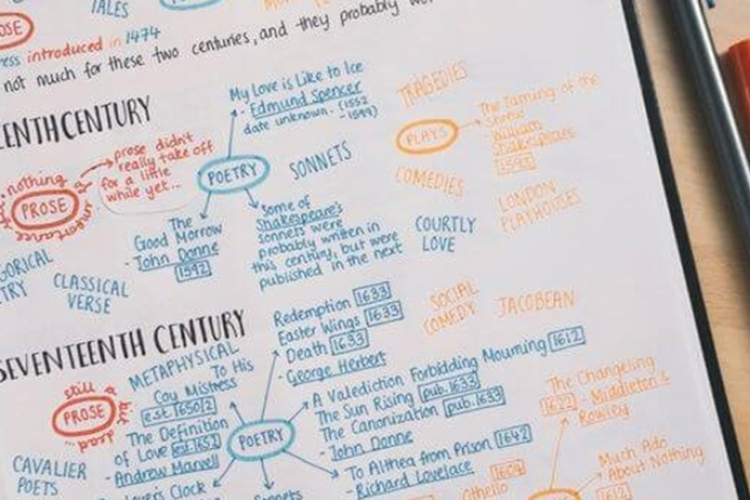 TALES
introduced in 1474
not much for these two centuries, and they probably
CENTURY
My Love is Like to Ice
- Edmund Spencer
date unknown. (1552
- 1599)
TRAGEDIES
PLAYS
The Taming of the
Shrew
William
Shakespeare
1592
prose didn't
really take off
for a little
while yet...
nothing
PROSE
POETRY
SONNETS
COMEDIES
LONDON
PLAYHOUSES
The
Good Morrow
- John Donne
1592
Some of
Shakespeare's
sonnets were
probably written in
this century, but were
published in the next
COURTLY
LOVE
CLASSICAL
VERSE
SEVENTEENTH CENTURY
Redemption 1633
Easter Wings 1633
Death 1633
- George Herbert
SOCIAL
COMEDY
JACOBEAN
METAPHYSICAL
still a
PROSE
but
To His
Coy Mistress
est. 1650/2
The Definition
of Love est. 1652
- Andrew Marvell
POETRY
A Valediction Forbidding Mourning 1612
The Sun Rising pub. 1633
The Canonization pub. 1633
- John Donne
To Althea from Prison 1642
- Richard Lovelace
The Changeling
1622 - Middleton &
Rowley
Much Ado
About Nothing
CAVALIER
POETS
Clock
Othello